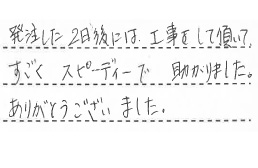 発注した2日後には、工事をして頂いて、
すごく スピーディーで 助かりました。
ありがとうございました。